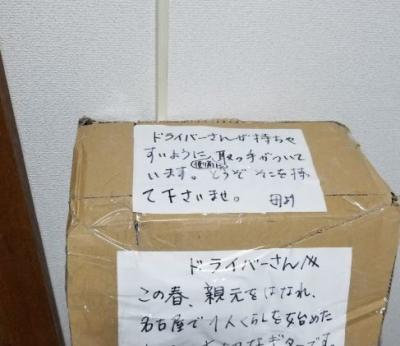 ドライバーさんが持ちや
すいように、取っ手がついて
います。どうぞそこを持っ
て下さいませ。 母より
ドライバーさんへ
この春、親元をはなれ、
名古屋で1人ぐらしを始めた